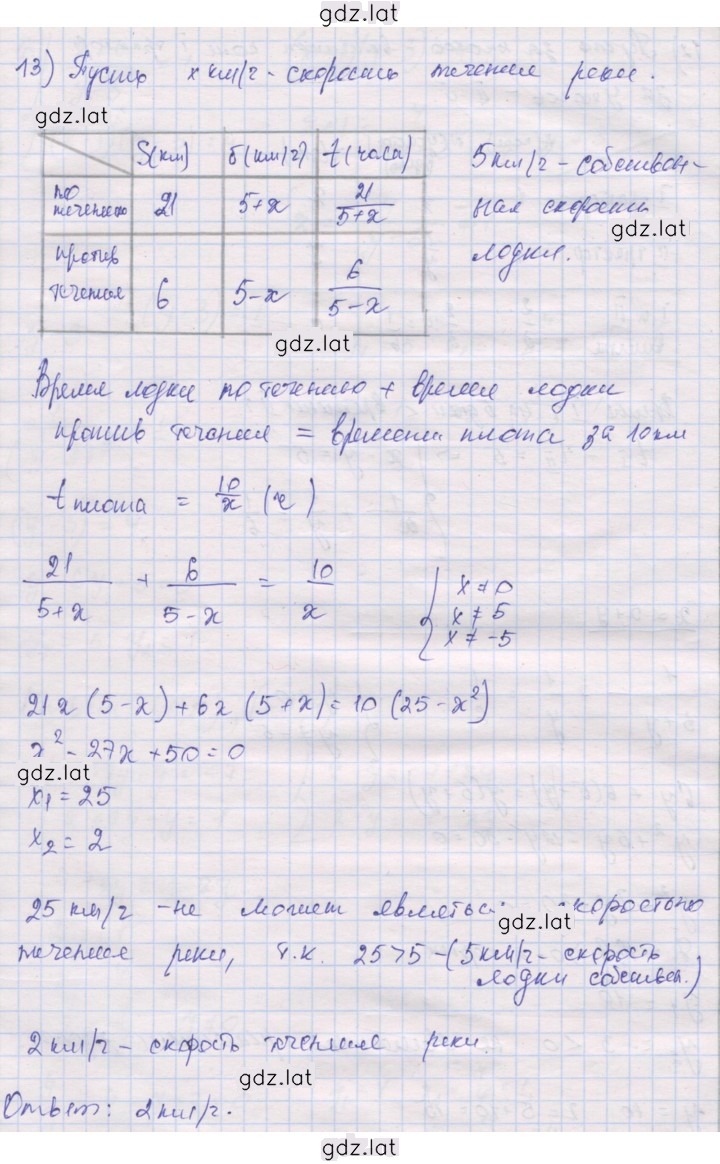 gdz.lat
13) Пусть x км/ч - скорость течения реки.
gdz.lat
S(км) v(км/ч) t(часа)
по течению 21 5+x 21/(5+x)
против течения 6 5-x 6/(5-x)
5 км/ч - собствен-
ная скорость
gdz.lat
лодки.
gdz.lat
Время лодки по течению + время лодки
против течения = времени плота за 10 км
t плота = 10/x (ч)
21/(5+x) + 6/(5-x) = 10/x
x ≠ 0
x ≠ 5
x ≠ -5
21x (5-x) + 6x (5+x) = 10 (25-x²)
x² - 27x + 50 = 0
gdz.lat
x₁ = 25
x₂ = 2
25 км/ч - не может являться скоростью
gdz.lat
течения реки, т.к. 25>5 - (5 км/ч - скорость
лодки собствен.)
2 км/ч - скорость течения реки.
gdz.lat
Ответ: 2 км/ч.
gdz.lat